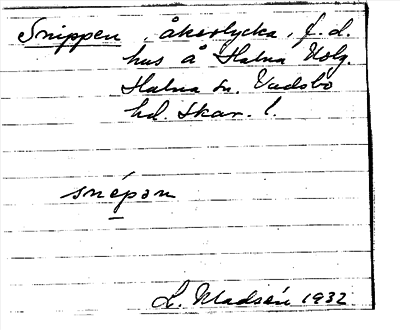 Snippen, åkerlycka, f.d.
hus å Halna
Halna sn. Vadsbo
hd. Skar. l.
snépən
L. Madsén 1932